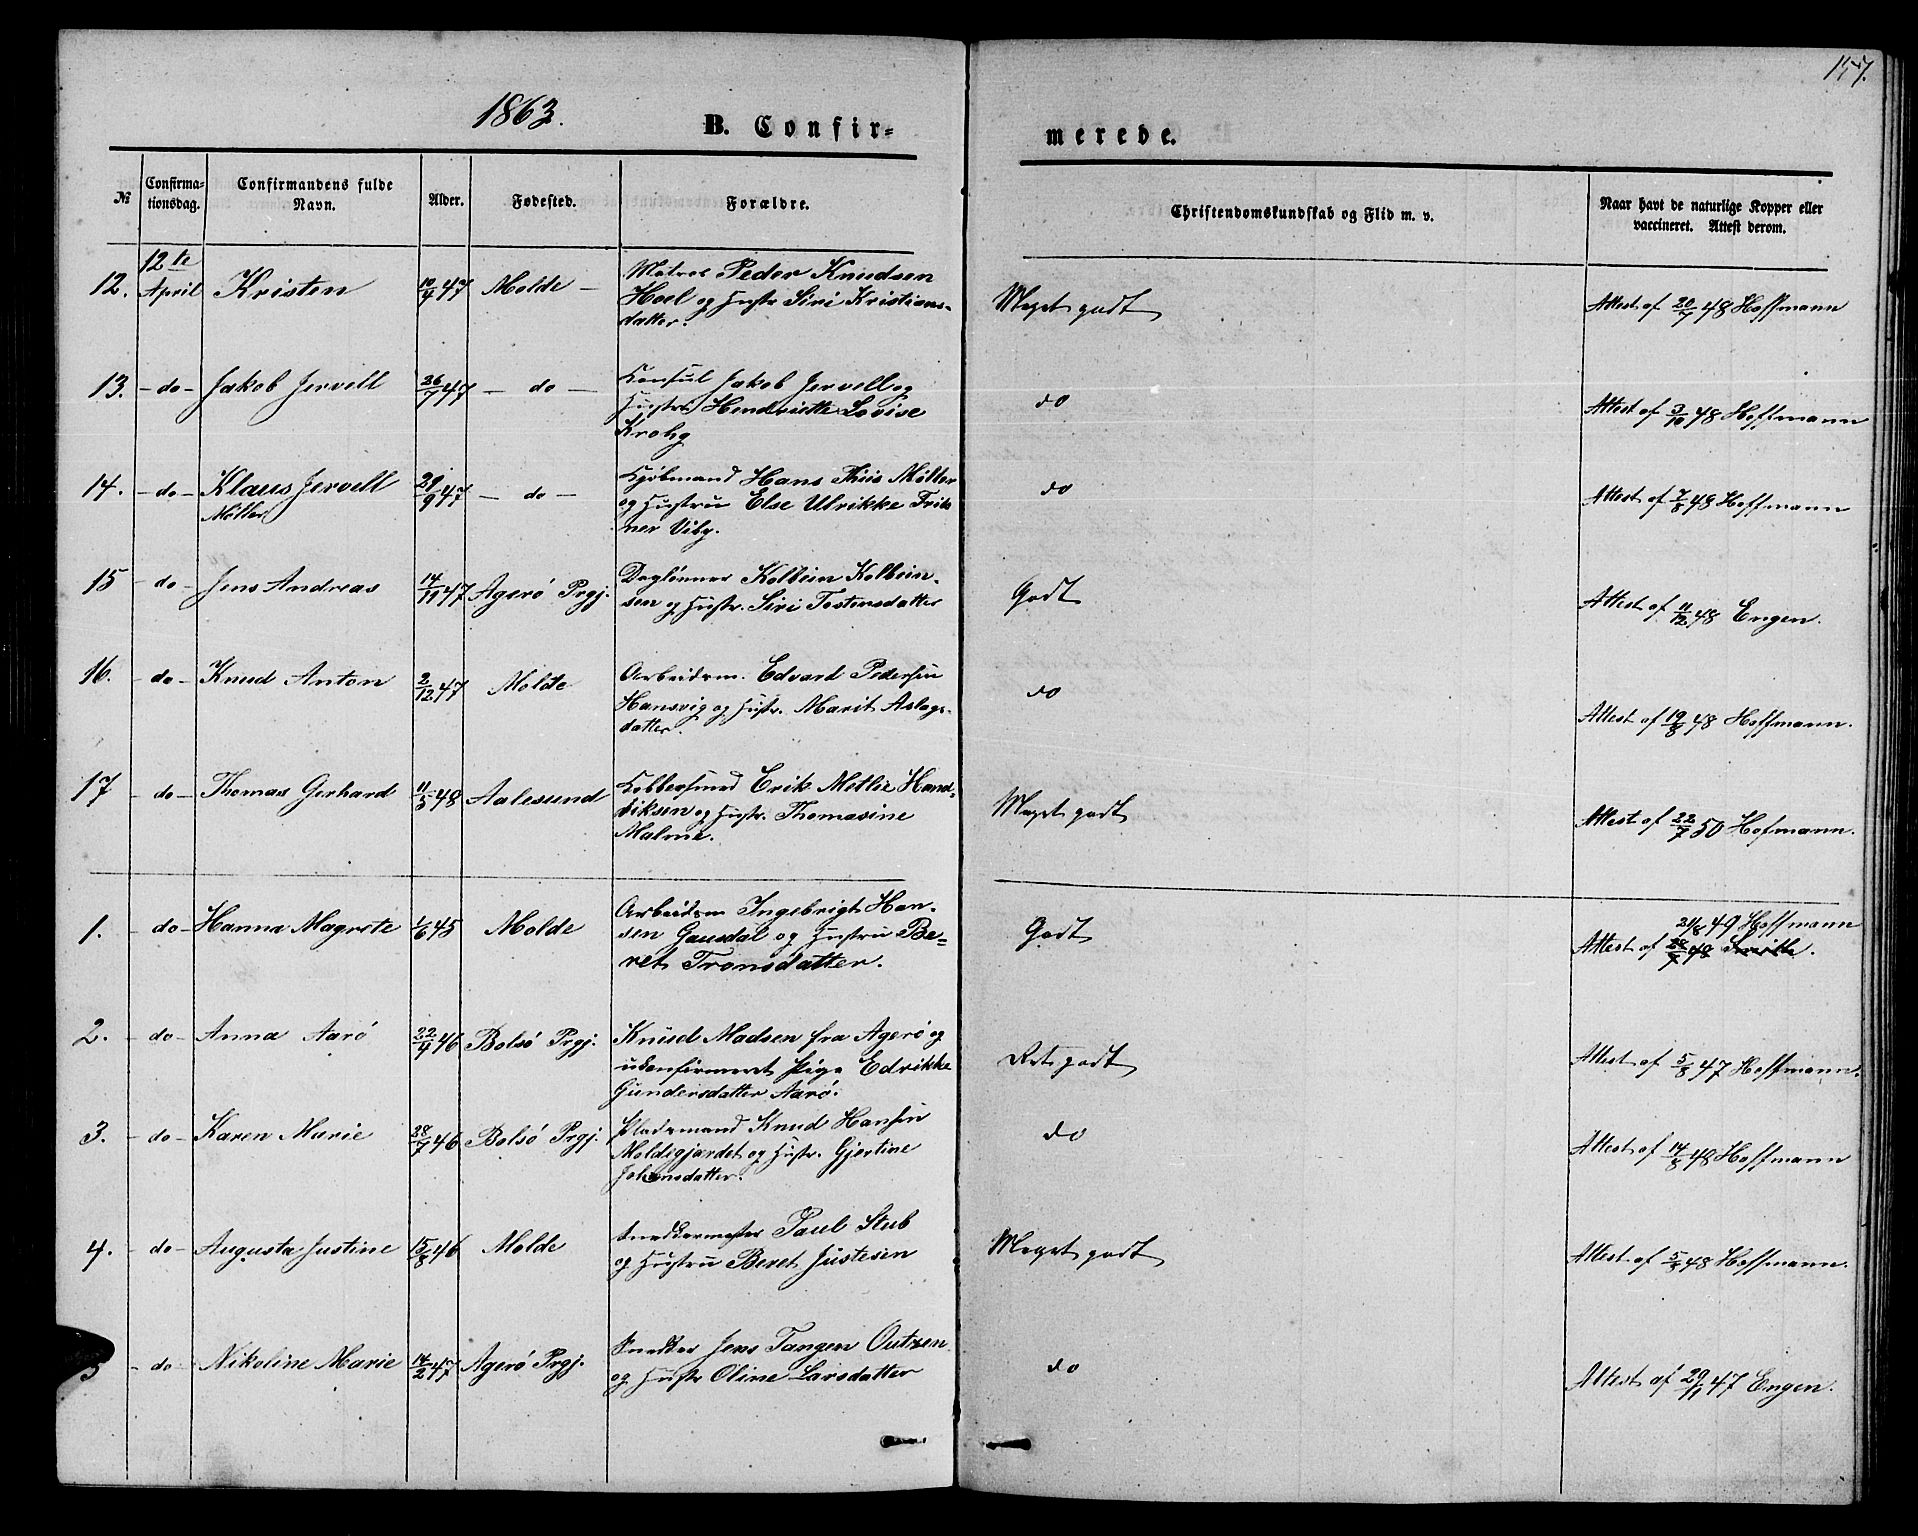 157.
1863.
B. Confir-
merede.
№
Confirma-
tionsdag.
Confirmandens fulde
Navn.
Alder.
Fødested.
Forældre.
Christendomskundskab og Flid m. v.
Naar havt de naturlige Kopper eller
vaccineret. Attest derom.
12. 12te April Kristen 10/4 47 Molde – Matros Peder Knudsen
Hoel og Hustr Siri Kristians-
datter.
Meget godt
Attest af 20/7 48 Hoffmann
13. – do – Jakob Jervell 26/7 47 – do – Konsul Jakob Jervell og
Hustru Hendriette Lovise
Krohg
do
Attest af 3/10 48 Hoffmann
14. – do – Klaus Jervell
Møller
29/9 47 – do – Kjøbmand Hans Thiis Møller
og Hustru Else Ulrikke Frik
ner Viby.
do
Attest af 7/8 48 Hoffmann
15 – do – Jens Andreas 14/11 47 Agerø Prgj. Daglønner Kolbein Kolbein-
sen og Hustr. Siri Tostensdatter
Godt
Attest af 11/12 48 Engen.
16. – do – Knud Anton 2/12 47 Molde Arbeidsm. Edvard Pedersen
Hansvig og Hustr. Marit Aslags-
datter.
do
Attest af 19/8 48 Hoffmann.
17 – do – Thomas Gerhard 11/3 48 Aalesund Kobbersmed Erik Metlie Hend-
riksen og Hustr. Thomasine
Malme.
Meget godt
Attest af 22/7 50 Hofmann.
1. – do – Hanna Magrete 1/6 45 Molde Arbeidsm Ingebrigt Han-
sen Gausdal og Hustru Be-
ret Tronsdatter.
Godt
21/8 49 Hoffmann
Attest af 28/7 48
2. – do – Anna Aarø 22/4 46 Bolsø Prgj. Knud Madsen fra Agerø og
ukonfirmeret Pige Edrikke
Gundersdatter Aarø.
Ret godt
Attest af 5/8 47 Hoffmann.
3. – do – Karen Marie 28/7 46 Bolsø Prgj. Pladsmand Knud Hansen
Moldegjærdet og Hustr. Gjertine
Johansdatter.
do
Attest af 14/8 48 Hoffmann
4. – do – Augusta Justine 15/8 46 Molde Snedkermester Paul Stub
og Hustru Beret Justesen
Meget godt
Attest af 5/8 48 Hoffmann.
5 – do – Nikoline Marie 14/2 47 Agerø Prgj. Snedker Jens Tangen Outzen
og Hustr Oline Larsdatter
do
Attest af 29/11 47 Engen.